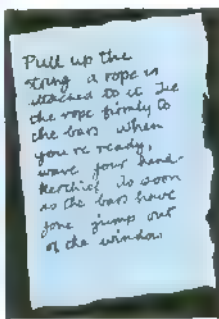 Pull up the
string a rope is
attached to it Tie
the rope firmly to
the bars When
you're ready,
wave your hand-
kerchief As soon
as the bars have
gone jump out
of the window